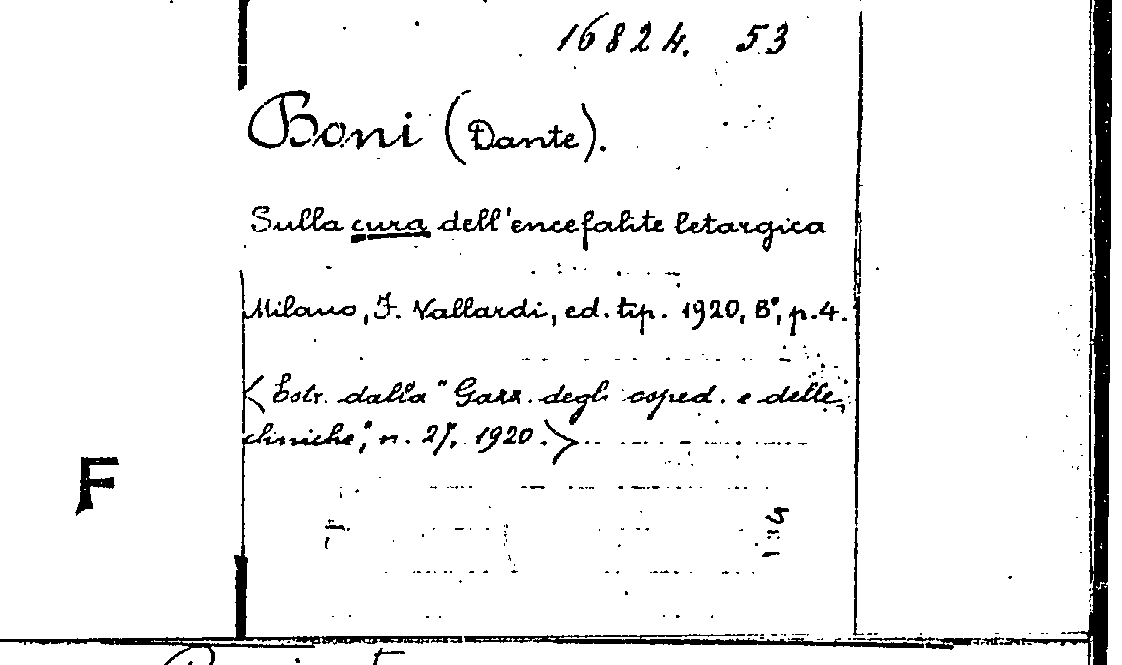 16824. 53
Boni (Dante).
Sulla cura dell'encefalite letargica
Milano, F. Vallardi, ed. tip. 1920, 8°, p. 4.
< Estr. dalla "Gazz. degli osped. e delle
cliniche", n. 27, 1920. >
F